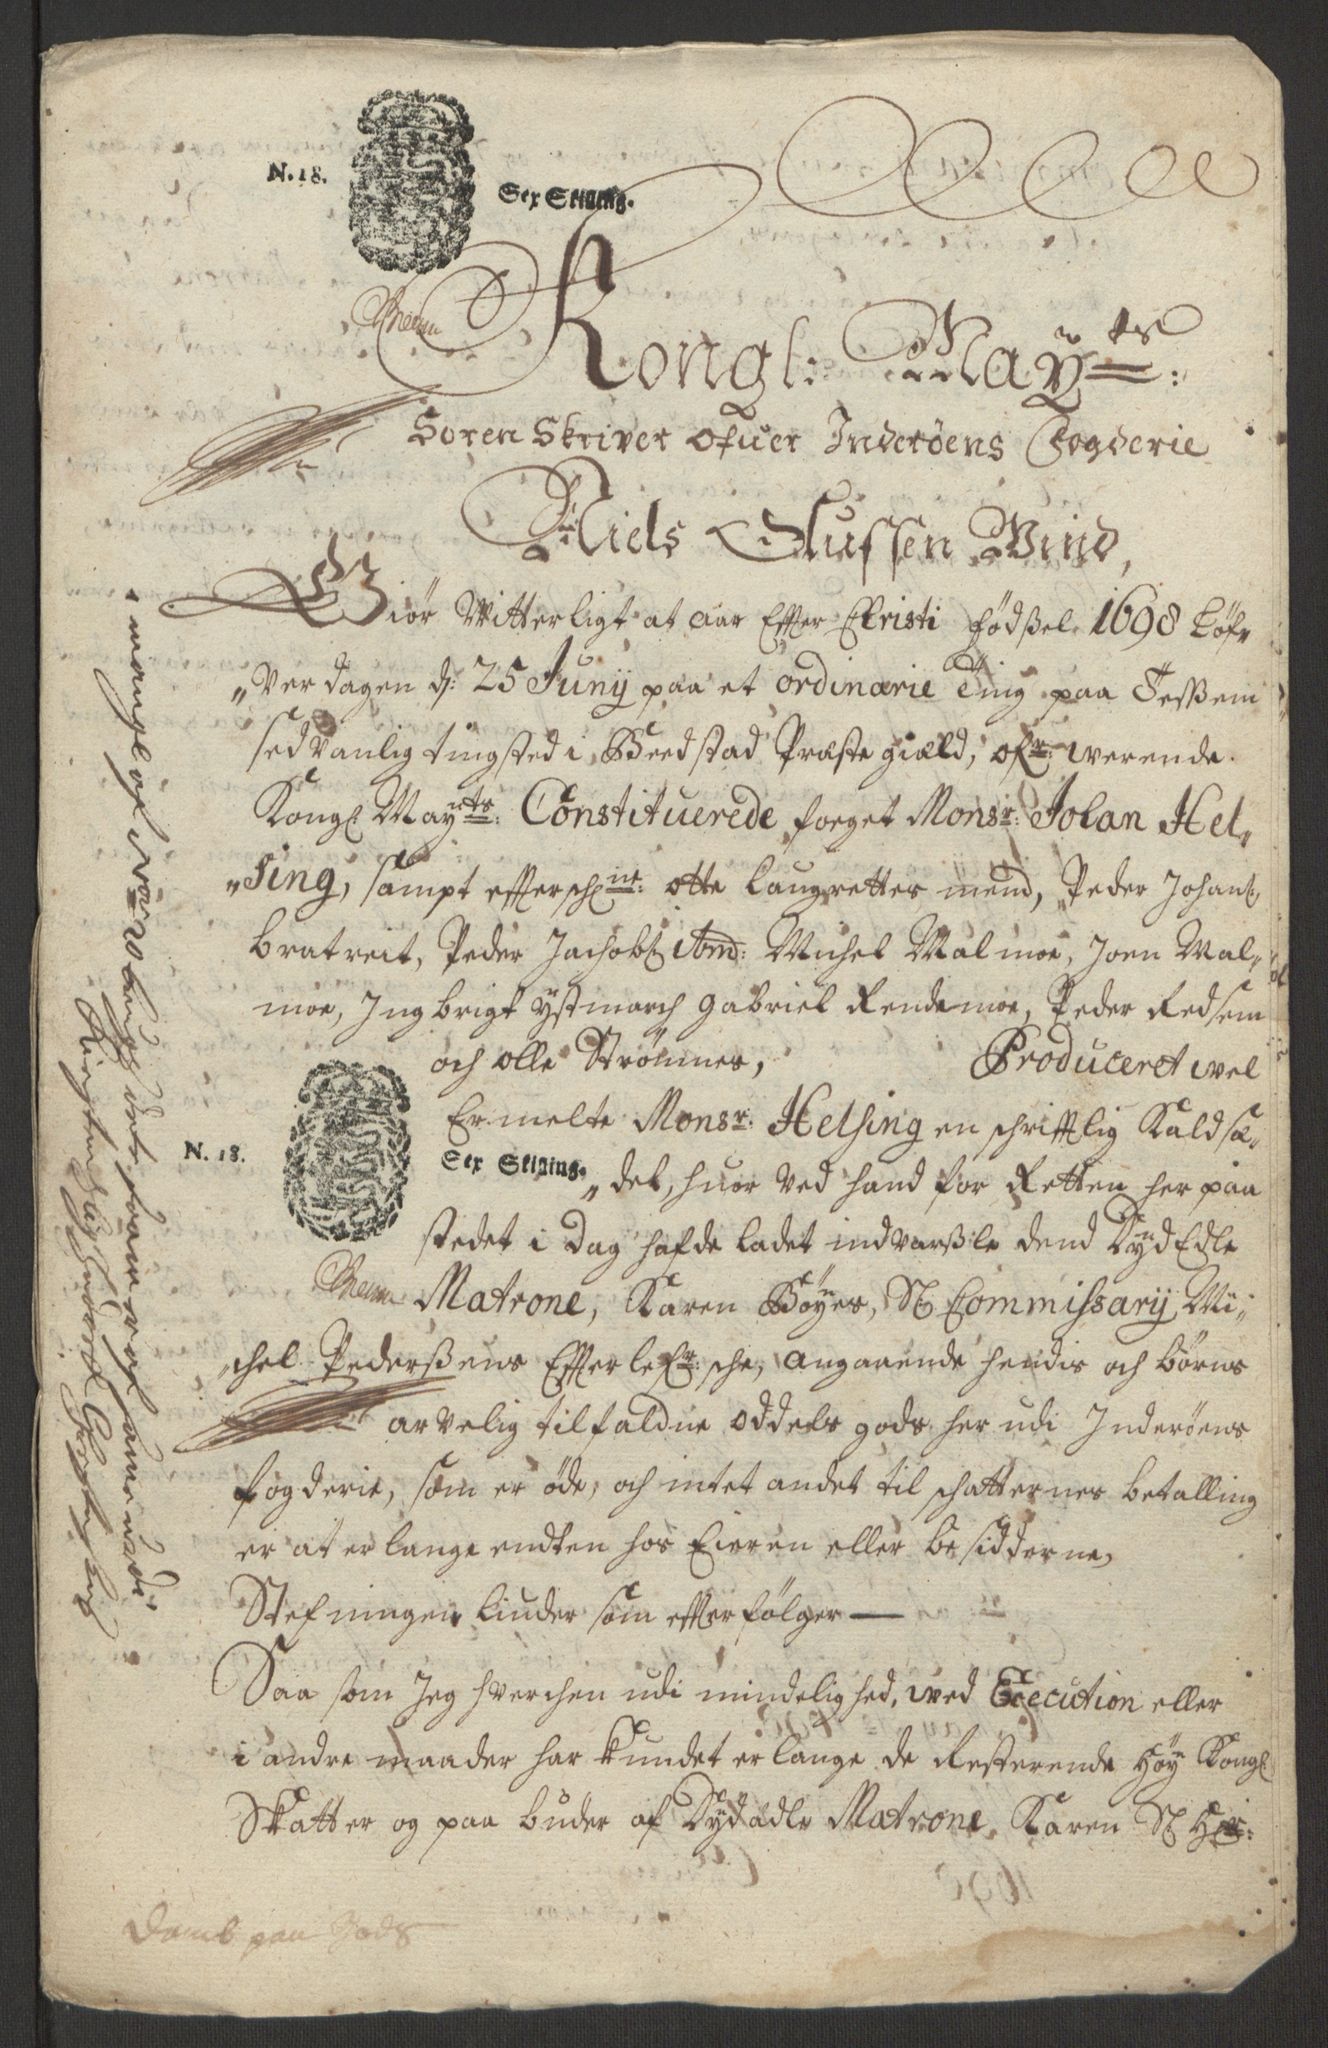 N. 18.
Sex Skilling.
Kongl: Mayts:
Soren Skriver ofuer Inderöens Fogderie
Niels Olufssen Wind,
Giör Witterligt at aar Effter Christi Födßel 1698 Löf,,
,,Verdagen d: 25 Junij paa et ordinarie Ting paa Feßem
sedvanlig tingsted i Beedstad Præste giæld, ofr: werende
Kongl Mayts: Constituerede foeget Monsr: Johan Hel,,
,,sing, sampt effterschne: otte laugrettes mend, Peder Johanß
bratreit, Peder Jachobß ibm: Michel Malmoe, Joen Mal,,
moe, Ingbrigt ystmarch gabriel Rendemoe, Peder Redsem
och olle Strömnes, Produceret wel
N. 18.
Sex Skilling.
Ermelte Monsr: Helsing en schrifftlig Kaldsæ,,
,,del, huor ved hand for Retten her paa
stedet i Dag hafde ladet indvarßle dend Dyd Edle
Matrone, Karen Böyes, Sl Commissarij Mi,,
,,chel Pederßens Effterlefr:sche, angaaende hendis och börns
arvelig tilfaldne oddels gods her udi Inderöens
fogderie, som er öde, och intet andet til schatternes betalling
er at erlange endten hos Eieren eller besidderne,
Stefningen liuder som effterfölger
Saa som Jeg hverchen udi mindelighed, wed Execution eller
i andre maader har kundet erlange de Resterende Höy Kongl
Skatter og paa buder af Dydædle Matrone Karen Sl Hr: